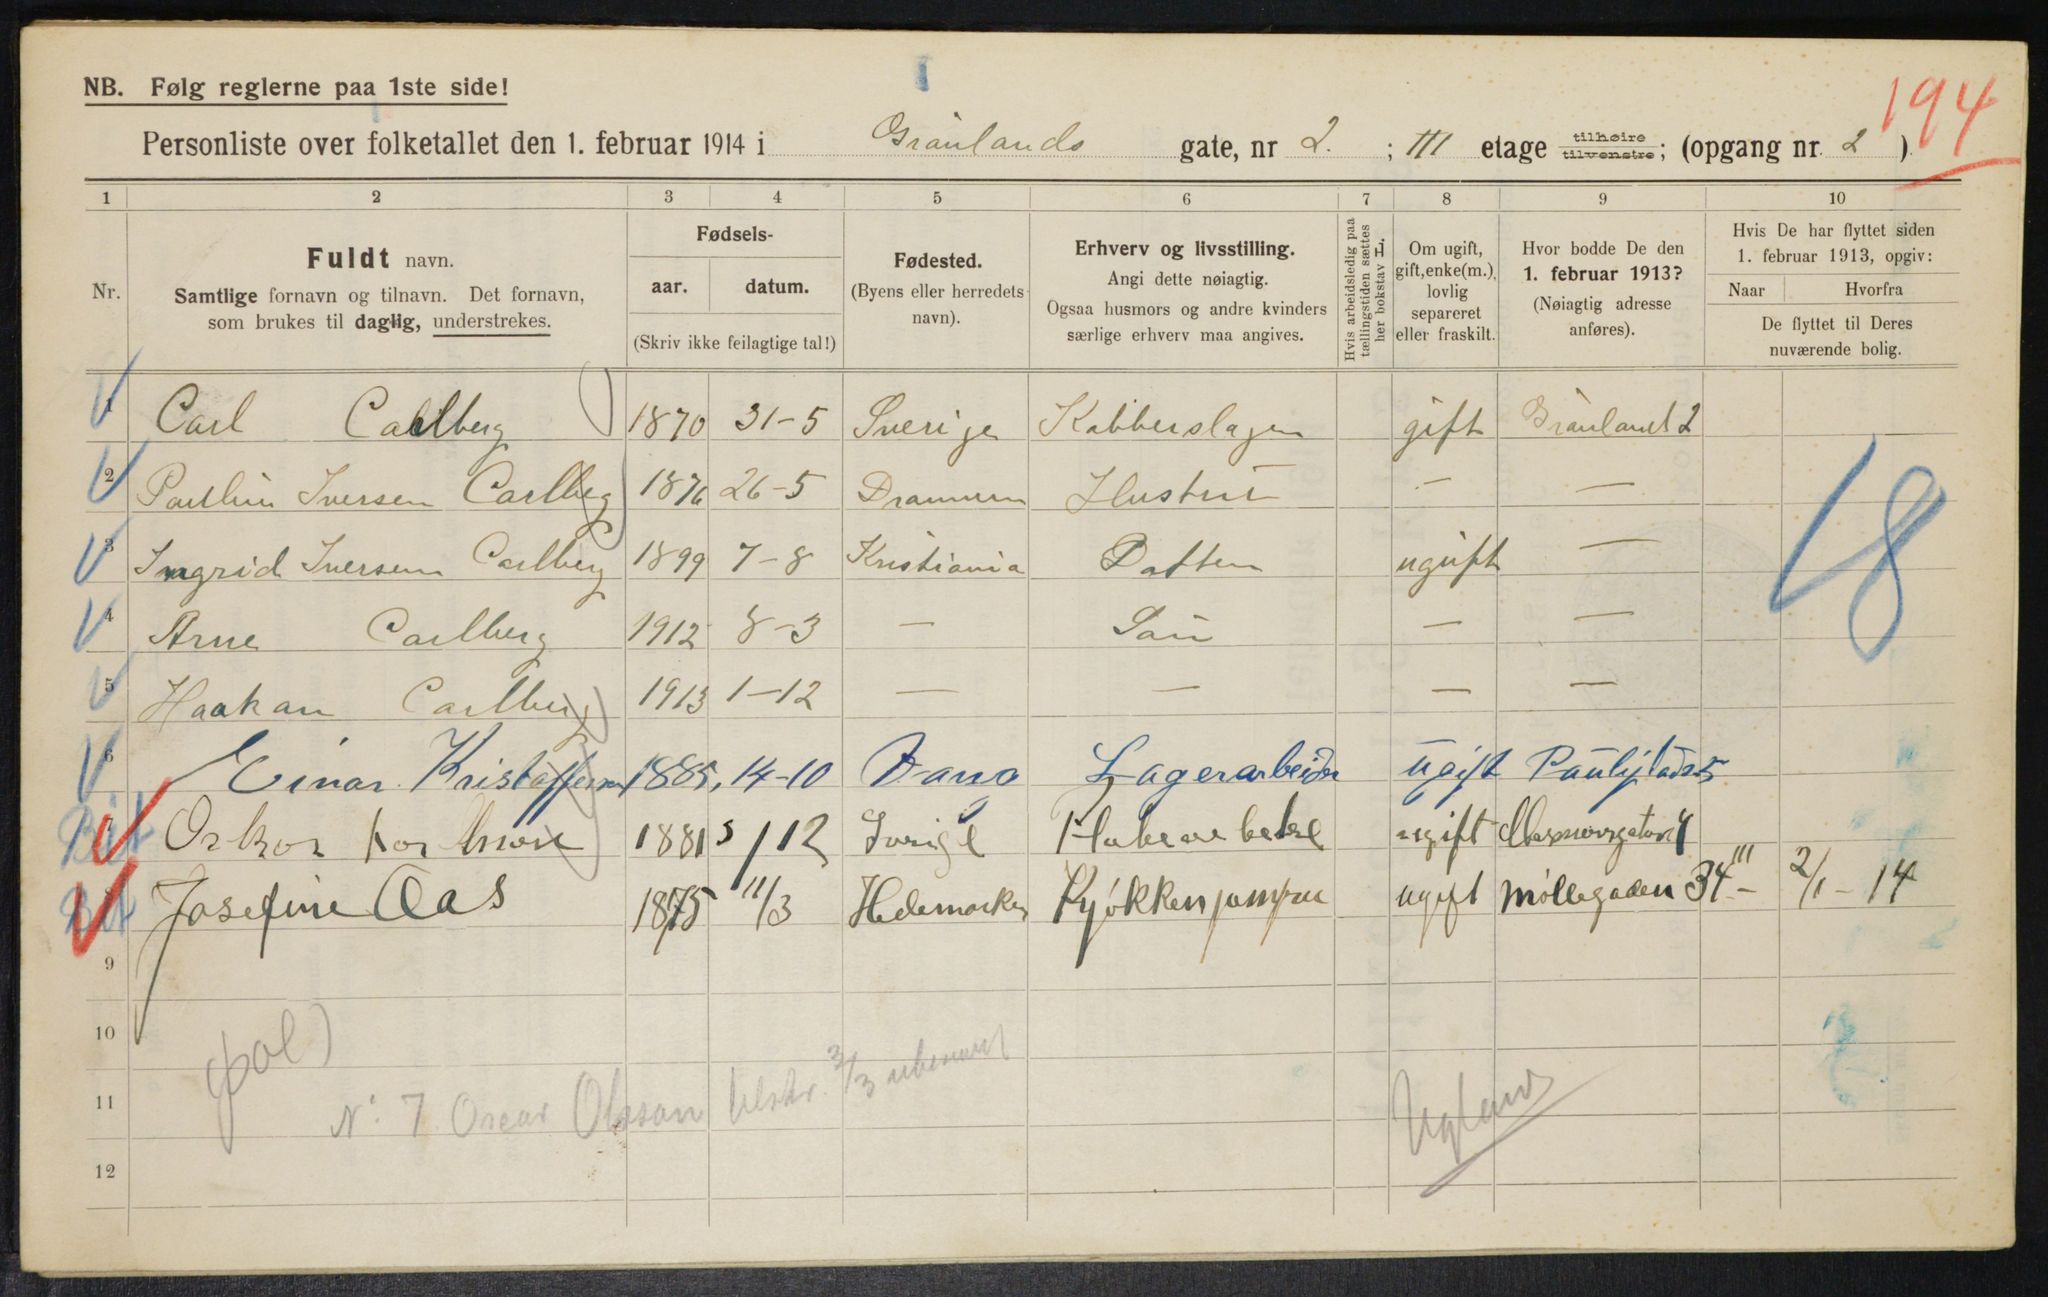 194
NB. Følg reglerne paa 1ste side!
Personliste over folketallet den 1. februar 1914 i Grönlands gate, nr 2. ; III etage tilhøire tilvenstre; (opgang nr. 2 ).
1 2 3 4 5 6 7 8 9 10
Nr.
Fuldt navn.
Samtlige fornavn og tilnavn. Det fornavn,
som brukes til daglig, understrekes.
Fødsels-
aar. datum.
(Skriv ikke feilagtige tal!)
Fødested.
(Byens eller herredets
navn).
Erhverv og livsstilling.
Angi dette nøiagtig.
Ogsaa husmors og andre kvinders
særlige erhverv maa angives.
Hvis arbeidsledig paa
tællingstiden sættes
her bokstav L.
Om ugift,
gift, enke(m.),
lovlig
separeret
eller fraskilt.
Hvor bodde De den
1. februar 1913?
(Nøiagtig adresse
anføres).
Hvis De har flyttet siden
1. februar 1913, opgiv:
Naar Hvorfra
De flyttet til Deres
nuværende bolig.
1 Carl Carlberg 1870 31-5 Sverige Kobberslager gift Grönland 2
2 Iversen Carlberg 1876 26-5 Drammen Hustru — —
3 Ingrid Iversen Carlberg 1899 7-8 Kristiania Datter ugift —
4 Arne Carlberg 1912 8-3 — Sön — —
5 Haakon Carlberg 1913 1-12 — — — —
6 Einar Kristoffersen 1885, 14-10 Lagerarbeider ugift
Bet 7 1881 /12 ugift
Bet 8 Josefine Aas 1875 11/3 Hedemarken Kjøkkenjomfru ugift Møllegaden 34 III — 2/1 - 14
18
9
10
11
12
(pol)
N: 7 Oscar Olsson 3/3 ubenævnt